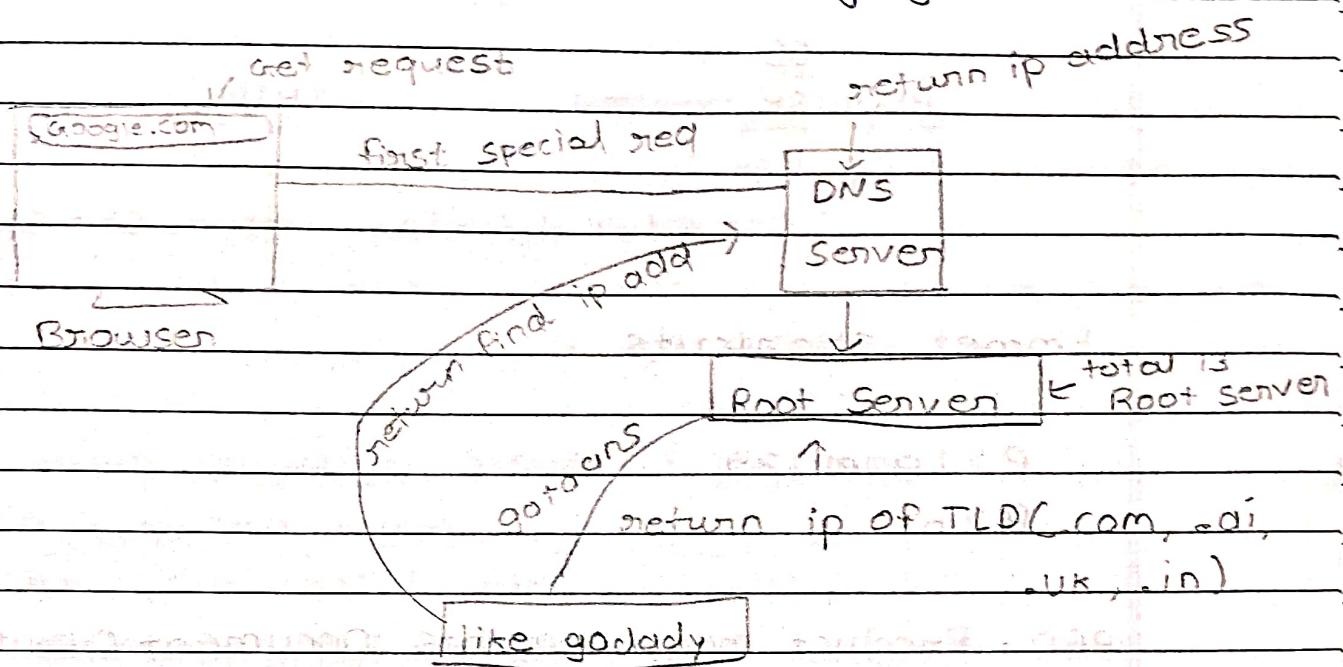 Get request
return ip address
Google.com
first special req
DNS
Server
return find ip add
Browser
Root Server
total is
Root server
goto ans
return ip of TLD(.com, .ai,
.uk, .in)
like godady